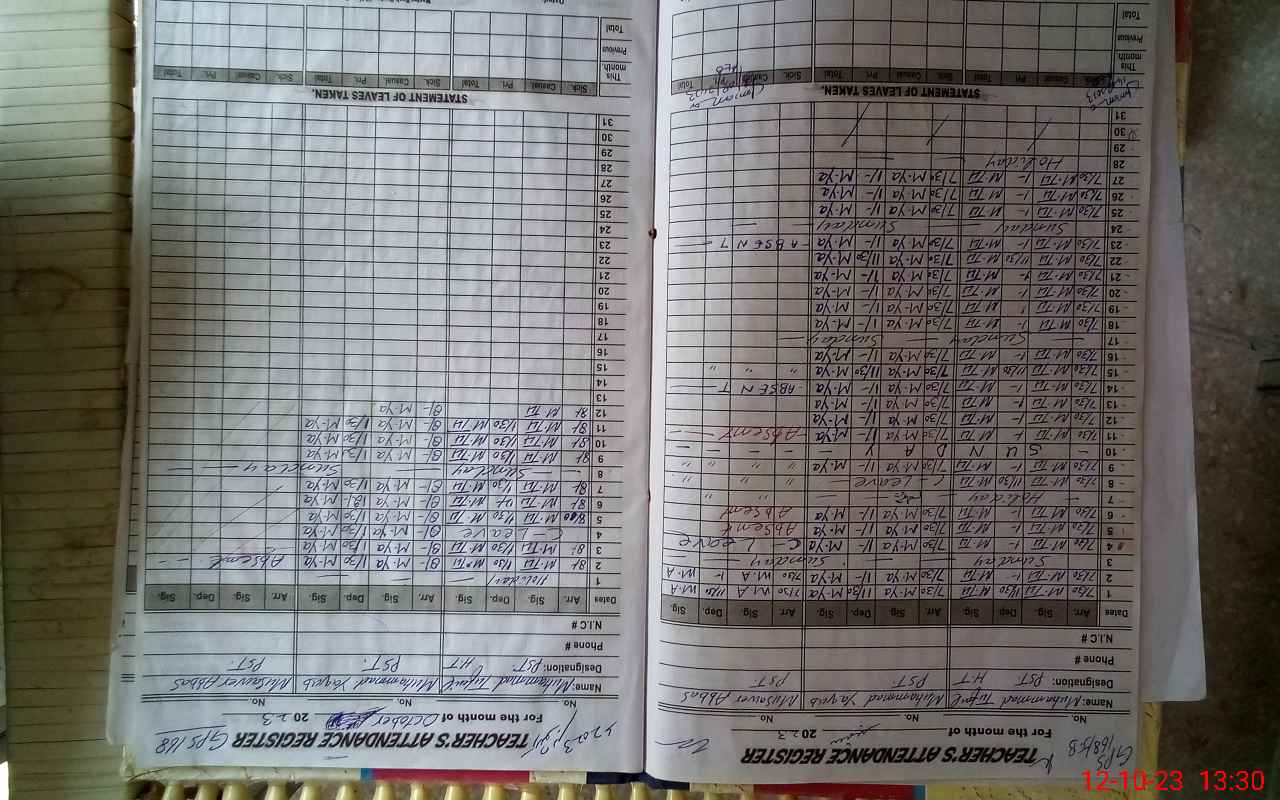 TEACHER'S ATTENDANCE REGISTER
GPS
168/5.B
For the month of 2023
No. No. No.
Name: Muhammad Tufail Muhammad Yaqub Musawer Abbas
Designation: PST. HT PST. PST.
Phone #
N.I.C #
Dates Arr. Sig. Dep. Sig. Arr. Sig. Dep. Sig. Arr. Sig. Dep. Sig.
1 7/30 M.Tu 11/30 M Tu 7/30 M-Ya 11/30 M-Ya 7/30 W.A 11/30 W.A
2 7/30 M.Tu 1- M Tu 7/30 M-Ya 1/- M-Ya 7/30 W.A 1- W.A
3 Sunday Sunday
4 7/30 M.Tu 1- M Tu 7/30 M-Ya 1/- M-Ya C-Leave
5 7/30 M.Tu 1- M Tu 7/30 M-Ya 1/- M-Ya Absent
6 7/30 M.Tu 1- M Tu 7/30 M-Ya 1/- M-Ya Absent
7 - Holiday - " "
8 7/30 M.Tu 11/30 M Tu C-Leave " "
9 7/30 M.Tu 1- M Tu 7/30 M-Ya 1/- M-Ya " "
10 - S U N D A Y - - - -
11 7/30 M.Tu 1- M Tu 7/30 M-Ya 1/- M-Ya -Absent-
12 7/30 M.Tu 1- M Tu 7/30 M-Ya 1/- M-Ya
13 7/30 M.Tu 1- M Tu 7/30 M-Ya 1/- M-Ya
14 7/30 M.Tu 1- M Tu 7/30 M-Ya 1/- M-Ya -ABSENT-
15 7/30 M.Tu 11/30 M Tu 7/30 M-Ya 11/30 M-Ya " " "
16 7/30 M.Tu 1- M Tu 7/30 M-Ya 1/- M-Ya
17 - Sunday - Sunday -
18 7/30 M.Tu 1- M Tu 7/30 M-Ya 1/- M-Ya
19 7/30 M.Tu M Tu 7/30 M-Ya 1/- M-Ya
20 7/30 M.Tu 1- M Tu 7/30 M-Ya 1/- M-Ya
21 7/30 M.Tu M Tu 7/30 M-Ya 1/- M-Ya
22 7/30 M.Tu 11/30 M Tu 7/30 M-Ya 11/30 M-Ya
23 7/30 M.Tu 1- M Tu 7/30 M-Ya 1/- M-Ya -ABSENT-
24 - Sunday - Sunday -
25 7/30 M.Tu 1- M Tu 7/30 M-Ya 1/- M-Ya
26 7/30 M.Tu 1- M Tu 7/30 M-Ya 1/- M-Ya
27 7/30 M.Tu 1- M Tu 7/30 M-Ya 1/- M-Ya
28 Holiday
29
30
31
STATEMENT OF LEAVES TAKEN.
Sick. Casual Pri. Total Sick. Casual Pri. Total Sick. Casual Pri. Total
This month.
Previous
Total
TEACHER'S ATTENDANCE REGISTER GPS 168
For the month of October 2023
No. No. No.
Name: Muhammad Tufail Muhammad Yaqub Musawer Abbas
Designation: PST. HT PST. PST.
Phone #
N.I.C #
Dates Arr. Sig. Dep. Sig. Arr. Sig. Dep. Sig. Arr. Sig. Dep. Sig.
1 Holiday
2 8/- M.Tu 1/30 M.Tu 8/- M-Ya 1/30 M-Ya Absent
3 8/- M.Tu 1/30 M.Tu 8/- M-Ya 1/30 M-Ya
4 C-Leave 8/- M-Ya 1/30 M-Ya
5 M.Tu 1/30 M Tu 8/- M-Ya 1/30 M-Ya
6 8/- M.Tu M.Tu 8/- M-Ya 12/- M-Ya
7 8/- M.Tu 1/30 M.Tu 8/- M-Ya 1/30 M-Ya
8 - Sunday - Sunday -
9 8/- M.Tu 1/30 M.Tu 8/- M-Ya 1/30 M-Ya
10 8/- M.Tu 1/30 M.Tu 8/- M-Ya 1/30 M-Ya
11 8/- M.Tu 1/30 M Tu 8/- M-Ya 1/30 M-Ya
12 8/- M Tu 8/- M-Ya
13
14
15
16
17
18
19
20
21
22
23
24
25
26
27
28
29
30
31
STATEMENT OF LEAVES TAKEN.
Sick. Casual Pri. Total Sick. Casual Pri. Total Sick. Casual Pri. Total
This month.
Previous
Total
12-10-23 13:30